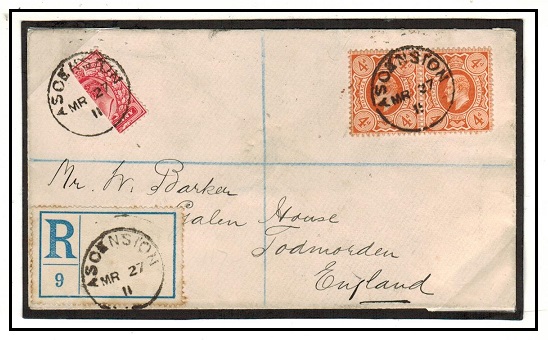 ASCENSION
MR 27
11
4d 4d
4d 4d
ASCENSION
MR 27
11
Mr. W. Barker
Galen House
Todmorden
England
R
9
ASCENSION
MR 27
11